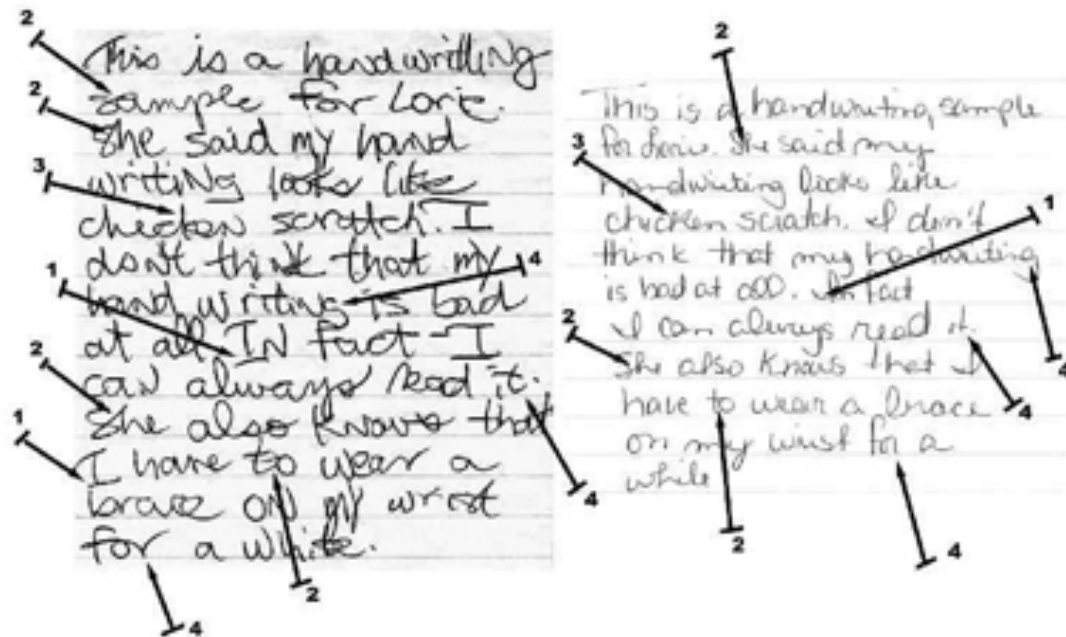 This is a handwritling
sample for Lorie.
She said my hand
writing looks like
chicken scratch. I
don't think that my
hand writing is bad
at all. IN fact I
can always read it.
She also knows that
I have to wear a
brace on my wrist
for a while.
2
2
3
1
2
1
4
4
2
4
This is a handwriting sample
for Lorie. She said my
handwriting looks like
chicken scratch. I don't
think that my handwriting
is bad at all. In fact
I can always read it.
She also knows that I
have to wear a brace
on my wrist for a
while
2
3
1
2
4
4
2
4